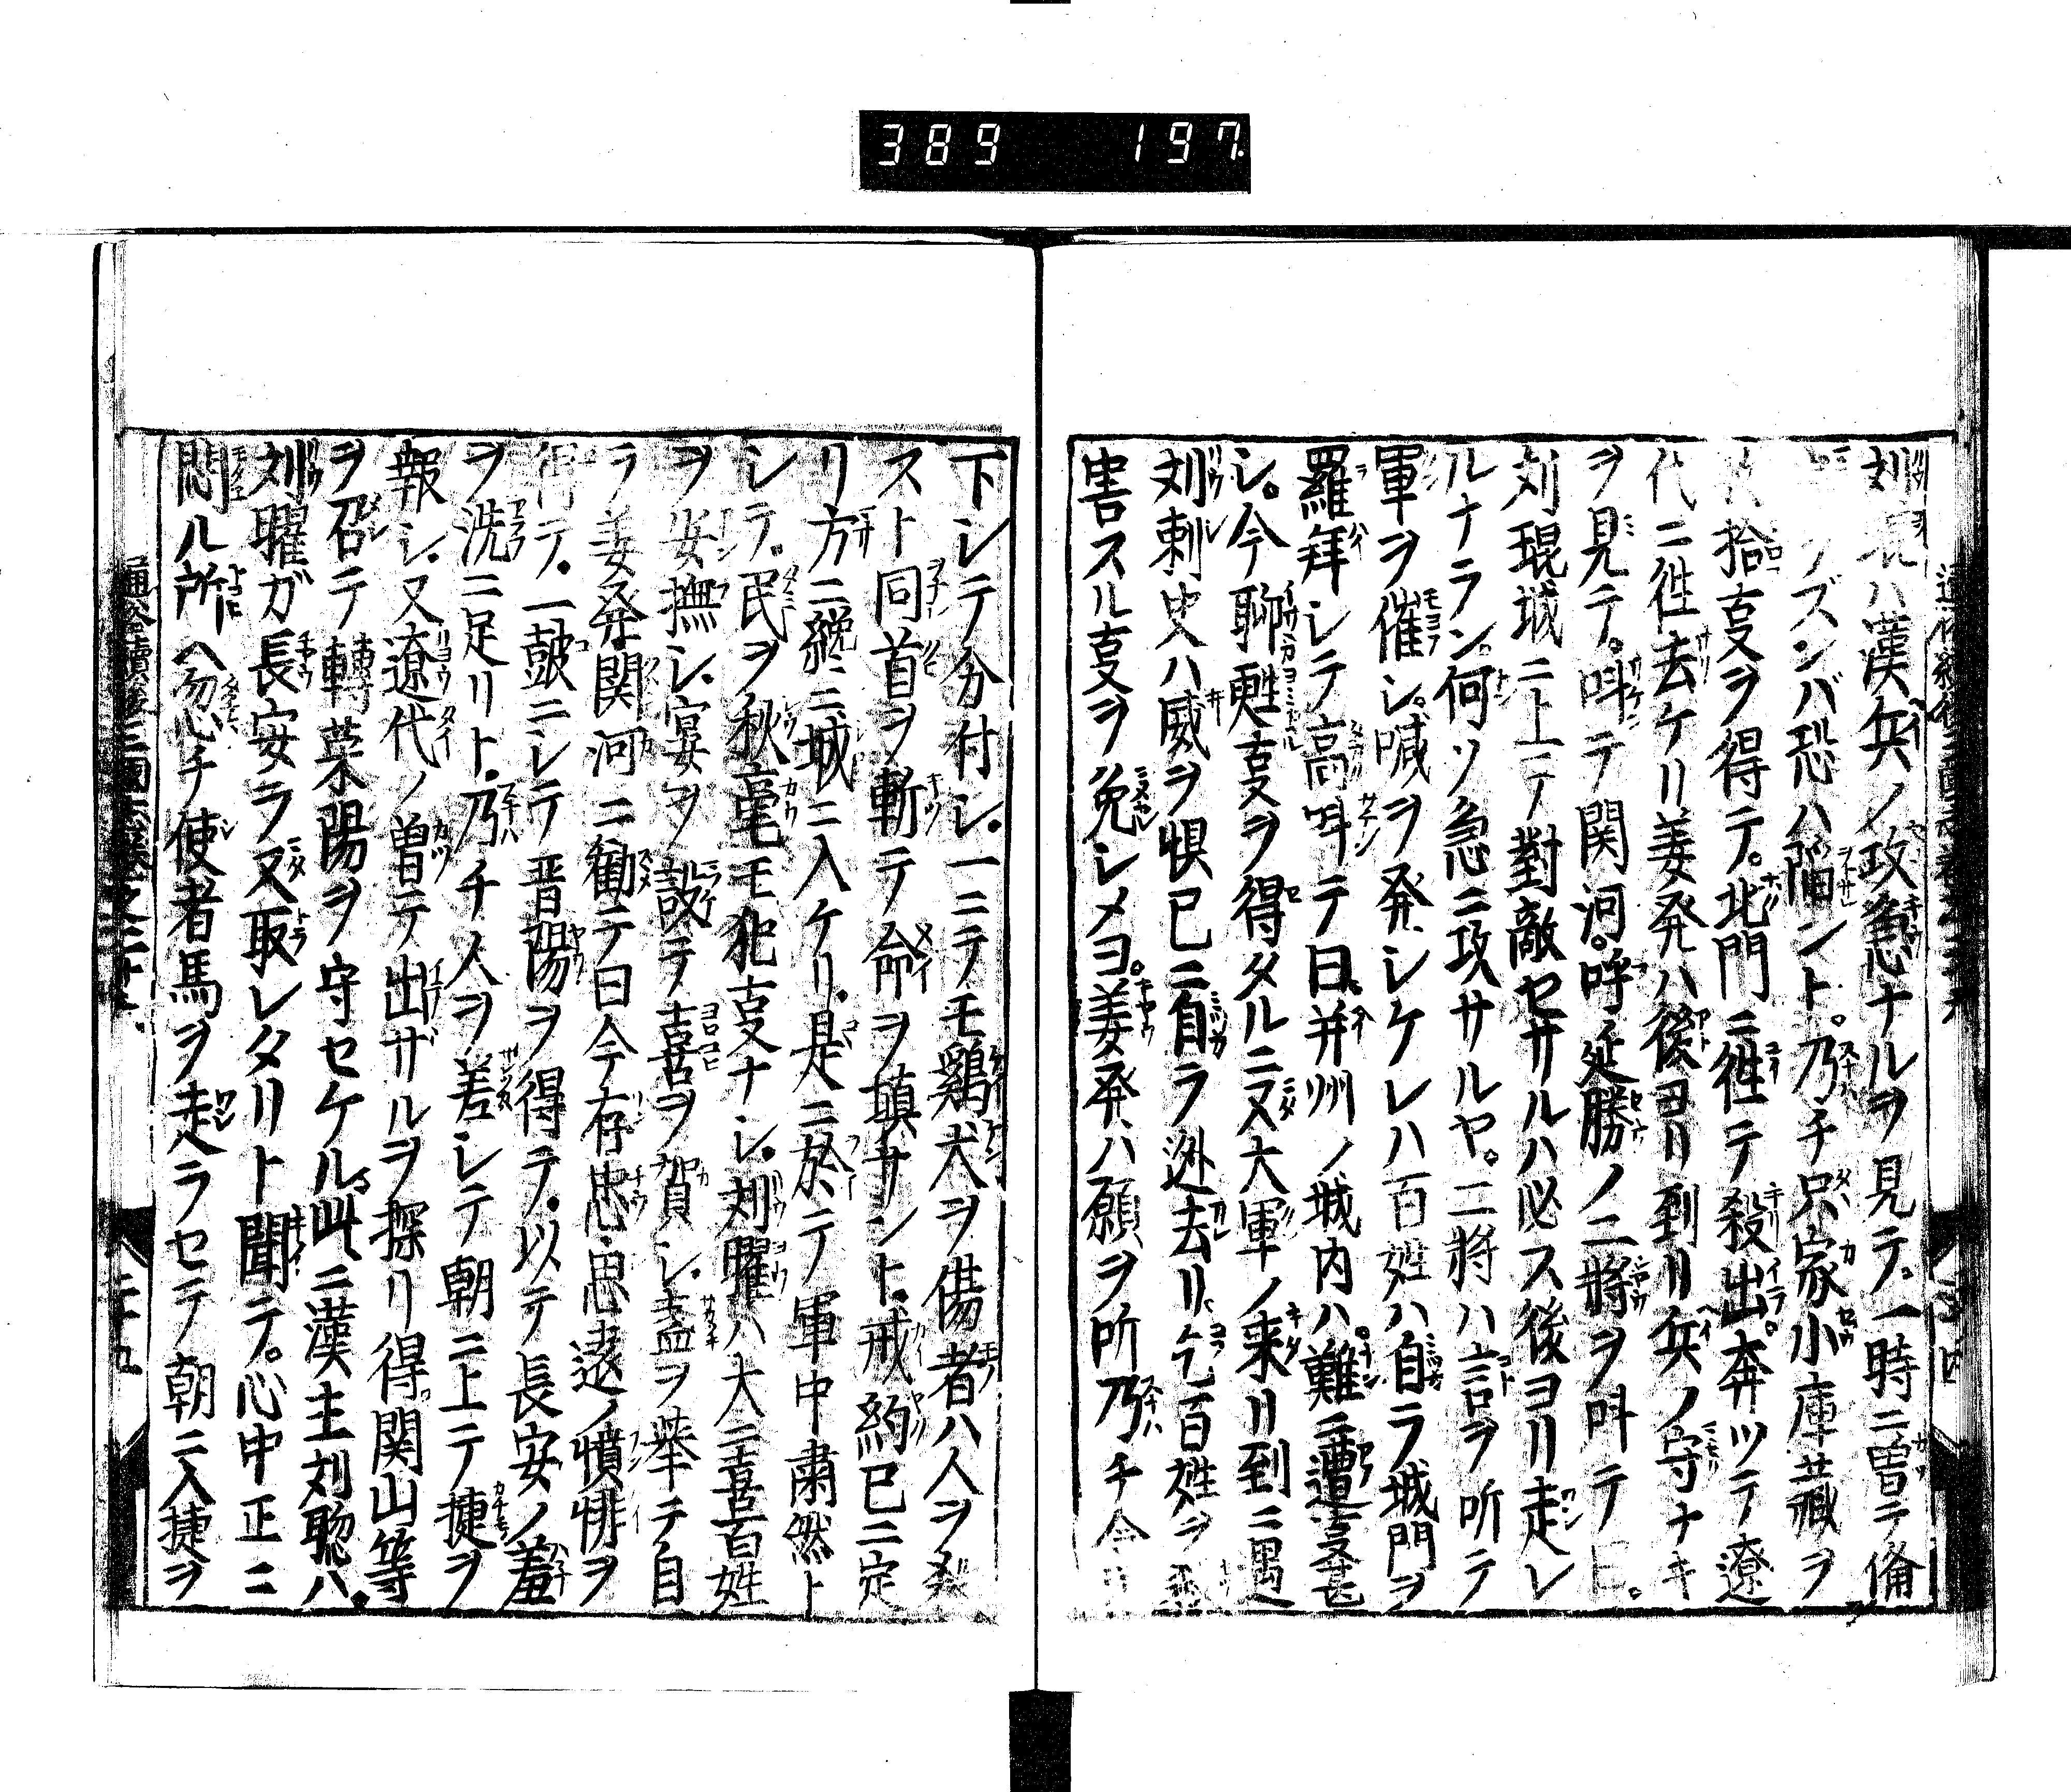 389 197
刘琨ハ漢兵ノ攻急ナルヲ見テ一時ニ曽テ偹
ノズンバ恐ハ陥ント。乃チ只家小庫藏ヲ
拾夏ヲ得テ。北門ニ徃テ殺出。奔ツテ遼
代ニ徃去ケリ姜発ハ後ヨリ到リ兵ノ守ナキ
ヲ見テ。呌テ関河。呼延勝ノ二將ヲ呌テ曰。
刘琨城ニ上テ對敵セサルハ必ス後ヨリ走レ
ルナラン。何ソ急ニ攻サルヤ。二將ハ言ヲ听テ
軍ヲ催シ。喊ヲ発シケレハ百姓ハ自ラ城門ヲ
羅拜シテ高呌テ曰。并州ノ城内ハ。難ニ遭夏甚
シ。今聊甦夏ヲ得タルニ又大軍ノ来リ到ニ遇
刘刺史ハ威ヲ惧已ニ自ラ逊去リ乞百姓ヲ
害スル夏ヲ免シメヨ。姜発ハ願ヲ听乃チ令
下シテ分付シ。一ニテモ鷄犬ヲ傷者ハ人ヲ殺
スト同首ヲ斬テ命ヲ塡サント。戒約已ニ定
リ方ニ纔ニ城ニ入ケリ。是ニ於テ軍中肅然ト
シテ。民ヲ秋毫モ犯夏ナシ。刘曜ハ大ニ喜百姓
ヲ安撫シ。宴ヲ設テ喜ヲ賀シ。盃ヲ挙テ自
ラ姜発関河ニ勸テ曰今存忠思遠ノ憤悱ヲ
得テ。一皷ニシテ晋陽ヲ得テ。以テ長安ノ羞
ヲ洗ニ足リト。乃チ人ヲ差シテ朝ニ上テ捷ヲ
報シ。又遼代ノ曽テ出ザルヲ探リ得関山等
ヲ召テ轉菜陽ヲ守セケル。此ニ漢主刘聡ハ。
刘曜ガ長安ラ又取レタリト聞テ。心中正ニ
悶ル所ヘ忽チ使者馬ヲ走ラセテ朝ニ入捷ヲ
通俗續後三國志
二十九